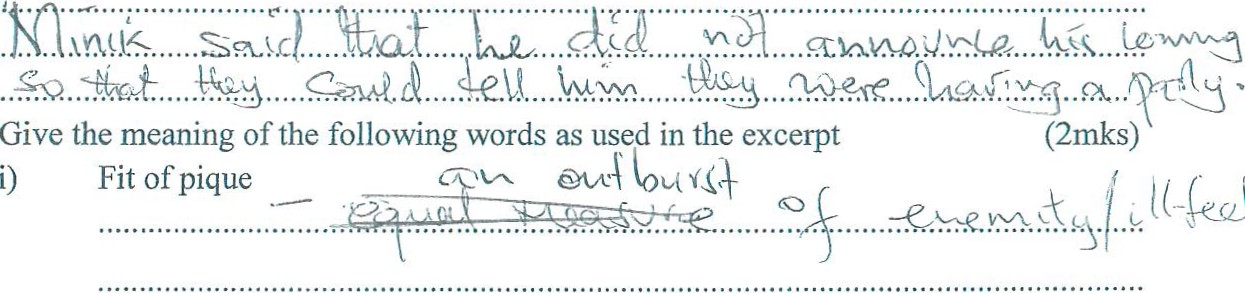 Minik said that he did not announce his coming
so that they could tell him they were having a party.
Give the meaning of the following words as used in the excerpt (2mks)
i) Fit of pique an outburst
– equal measure of enemity/ill-feel